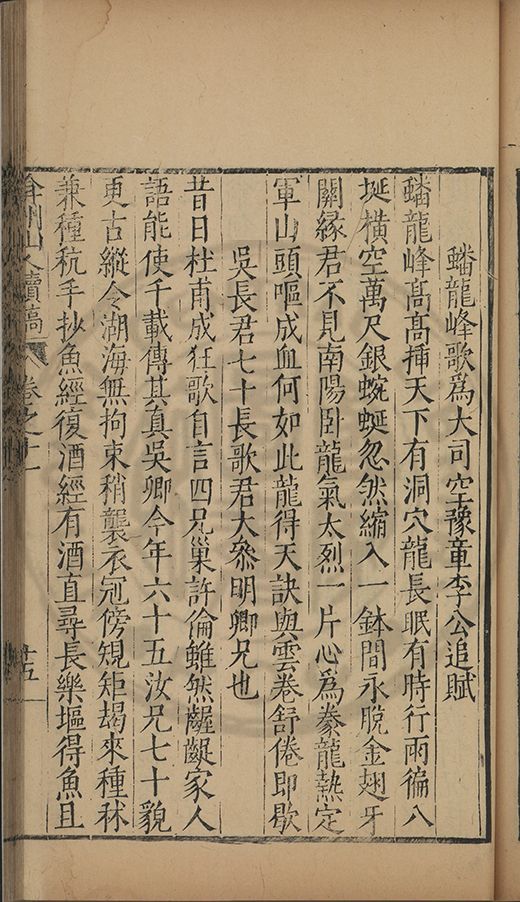 蟠龍峰歌爲大司空豫章李公追賦
蟠龍峰髙髙揷天下有洞穴龍長眠有時行雨徧八
埏橫空萬尺銀蜿蜒忽然縮入一鉢間永脫金翅牙
關縁君不見南陽卧龍氣太烈一片心爲豢龍熱定
軍山頭嘔成血何如此龍得天訣與雲卷舒倦即歇
吳長君七十長歌君大叅明卿兄也
昔日杜甫成狂歌自言四兄巢許倫雖然齷齪家人
語能使千載傳其真吳卿今年六十五汝兄七十貌
更古縱令湖海無拘束稍襲衣冠傍䂓矩朅來種秫
兼種秔手抄魚經復酒經有酒直尋長樂塸得魚且
弇州山人續稿 卷之十一 廿五